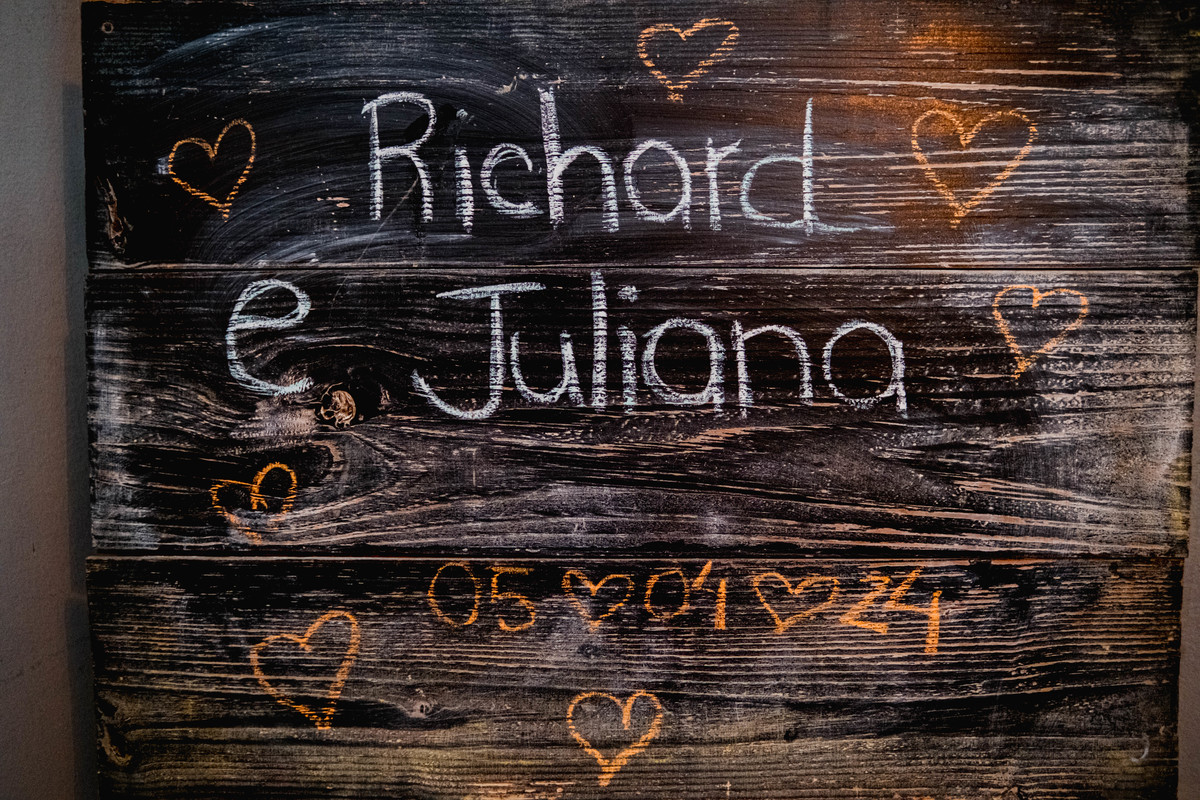 Richard
e Juliana
05 ♡ 01 ♡ 24